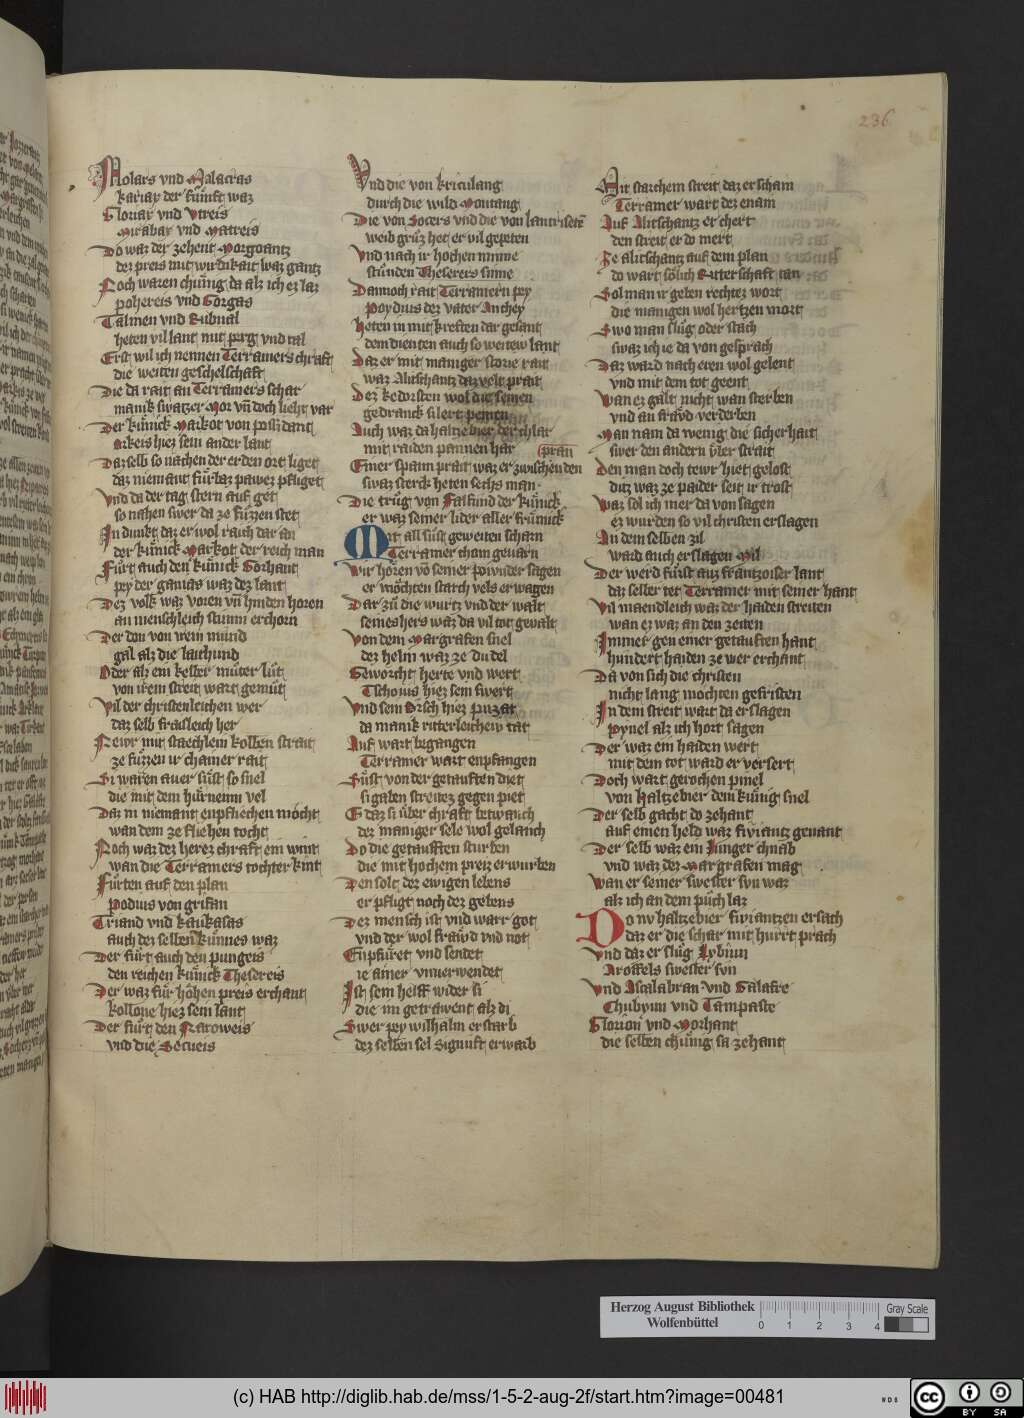 236
Molars vnd Malacras
kariax der fúnft waz
Glouar vnd vtreis
Mirabar vnd Matreis
Do waz der zehent Morgoantz
dez preis mit wirdikait waz gantz
Noch waren chúng da alz ich ez laz
polxereis vnd Gorgas
Talmen vnd Rubual
heten vil lant mit perg vnd tal
Erst wil ich nennen Terramers chraft
die weiten geschelschaft
Die da rait an Terramers schar
manik swartzer Mor vn̄ doch lieht var
Der kúnick Markot von possidant
arkeis hiez sein ander lant
Daz selb so nachen der erden ort liget
daz niemant fúrbaz pawez pfliget
Vnd da der tag stern auf get
so nahen swer da ze fúzzen stet
In dunkt daz er wol raich dar an
der kúnick Markot der reich man
Fúrt auch den kúnick Gorhant
pey der ganias waz dez lant
Dez volk waz voren vn̄ hinden horen
an menschleich stimm erchorn
Der don von irem mund
gal alz die laithund
Oder alz ein kelber múter lút
von irem streit wart gemút
Vil der christenleichen wer
daz selb fraisleich her
Newr mit staechlem kolben strait
ze fúzzen ir chainer rait
Si waren auer súst so snel
die mit dem húrnenm vel
Daz in niemant enpfliechen mócht
wan dem ze fliehen tocht
Noch waz dez herez chraft ein wint
wan die Terramers tochter kint
Fúrten auf den plan
podius von grifan
Triand vnd kaukasas
auch dez selben kúnnes waz
Der fúrt auch den pungeis
den reichen kúnick Thesereis
Der waz fúr hóhen preis erchant
kollone hiez sein lant
Der fúrt den Naroweis
vnd die Secueis
Vnd die von kriculang
durch die wild Montang
Die von Socers vnd die von lantrisete
weib grúz het er vil gepeten
Vnd nach ir hochen minne
stúnden Theserers sinne
Dannoch rait Terramern pey
Poydius dez vater Anchey
Heten in mit kreften dar gesant
dem dienten auch so weitew lant
Daz er mit maniger storie rait
waz Alitschantz daz velt prait
Dez kedorsten wol die seinen
gedranck silert peinen
Auch waz da haltzebier der chlar
mit raiden pannen har
Einer spann prait waz er zwischen den
pran
swaz sterck heten sechs man
Die trúg von Falfund der kúnick
er waz seiner lider aller frúmick
Mit all súst geweiten scharn
Terramer cham geuarn
Wir hóren vō seiner poinder sagen
er móchten starch vels erwagen
Dar zú die wurtz vnd der walt
seines hers waz da vil tot geualt
Von dem Margrafen snel
dez helm waz ze dudel
Geworcht herte vnd wert
Tschoius hiez sein swert
Vnd sein Orsch hiez puzat
da manik ritterleichew tat
Auf wart begangen
Terramer wart enpfangen
Súst von der getauften diet
si gaben streitez gegen piet
E daz si úber chraft betwanch
dez maniger sele wol gelanch
Do die getaufften sturben
die mit hochem preiz erwurben
Den solt dez ewigen lebens
er pfligt noch dez gebens
Dez mensch ist vnd warr got
vnd der wol fraẃd vnd not
Enpfúret vnd sendet
ie ainer vnuerwendet
Ist sein helff wider si
die im getrawent alz di
Swer pey wilhalm erstarb
dez selben sel signuft erwarb
Mit starchem streit daz erschain
Terramer wart dez enain
Auf Alitschantz er chert
den streit er do mert
Ze alitschantz auf dem plan
do wart solich Ritterschaft tan
Sol man ir geben rechtez wort
die manigen wol hertzen mort
Swo man slúg oder stach
swaz ich ie da von gesprach
Daz ward nach eren wol gelent
vnd mit dem tot geent
Wan ez galt nicht wan sterben
vnd an fraẃd verderben
Man nam da wenig die sicherhait
swer den andern v̄ber strait
Den man doch tewr hiet gelost
ditz waz ze paider seit ir trost
Waz sol ich mer da von sagen
ez wurden so vil christen erslagen
An dem selben zil
ward auch erslagen Mil
Der werd fúrst auz frantzoiser lant
daz selber tet Terramer mit seiner hant
Vil maendleich waz der haiden streiten
wan ez waz an den zeiten
Immer gen einer getauften hant
hundert haiden ze wer erchant
Da von sich die christen
nicht lang mochten gefristen
In dem streit wart da erslagen
pynel alz ich hort sagen
Der waz ein haiden wert
mit dem tot ward er versert
Doch wart gerochen pinel
von haltzebier dem kúnig snel
Der selb gacht do zehant
auf einen held waz fiviantz genant
Der selb waz ein Junger chnab
vnd waz der Margrafen mag
Wan er seiner swester svn waz
alz ich an dem púch laz
Do nv haltzebier fiviantzen ersach
daz er die schar mit hurrt prach
Vnd daz er slúg Lybinn
Aroffels swester svn
Vnd Ascalabran vnd Galafre
Chubynn vnd Tampaste
Glorion vnd Morhant
die selben chúnig sa zehant
Herzog August Bibliothek
Wolfenbüttel
0 1 2 3 4
Gray Scale
(c) HAB http://diglib.hab.de/mss/1-5-2-aug-2f/start.htm?image=00481
cc BY SA